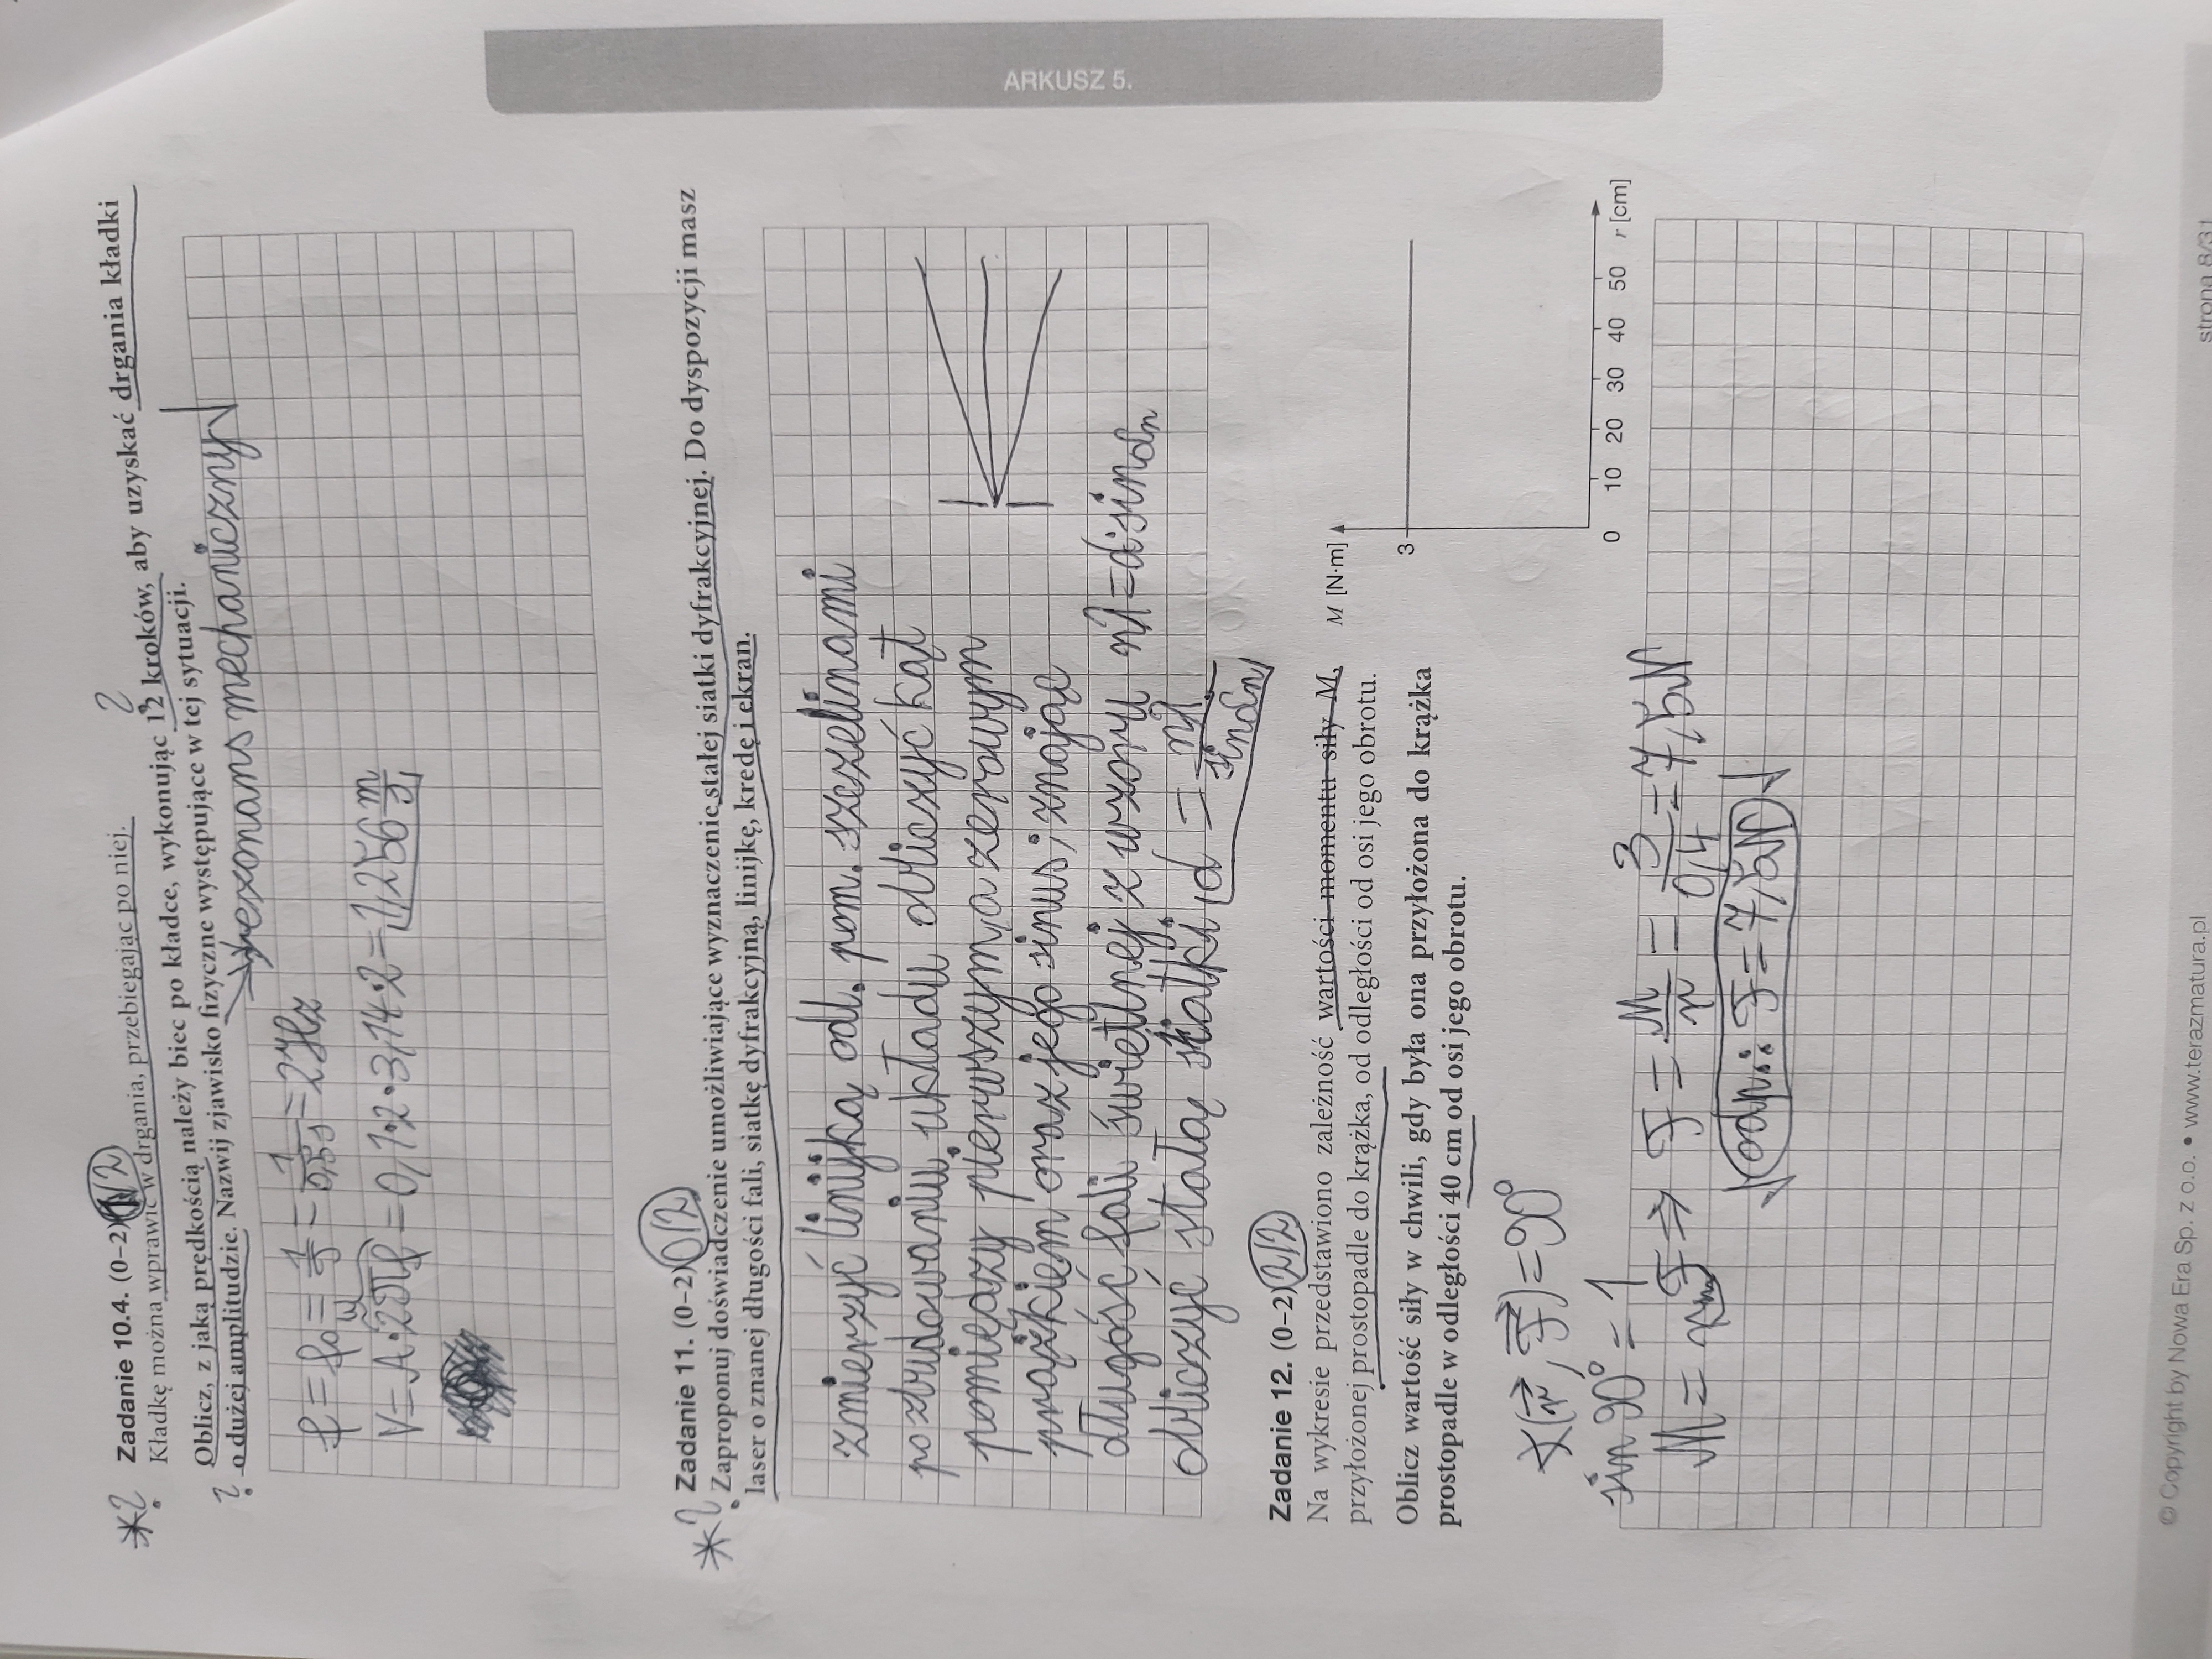 ARKUSZ 5.
*? Zadanie 10.4. (0–2) 1/2
Kładkę można wprawić w drgania, przebiegając po niej.
Oblicz, z jaką prędkością należy biec po kładce, wykonując 12 kroków, aby uzyskać drgania kładki
? o dużej amplitudzie. Nazwij zjawisko fizyczne występujące w tej sytuacji.
rezonans mechaniczny
f = f₀ = 1/T = 1/0,5s = 2Hz
V = A·2πf = 0,1·2·3,14·2 = 1,256 m/s
*? Zadanie 11. (0–2) 0/2
Zaproponuj doświadczenie umożliwiające wyznaczenie stałej siatki dyfrakcyjnej. Do dyspozycji masz
laser o znanej długości fali, siatkę dyfrakcyjną, linijkę, kredę i ekran.
zmierzyć linijką odl. pom. szczelinami
po zbudowaniu układu obliczyć kąt
pomiędzy pierwszym, a zerowym
prążkiem oraz jego sinus; znając
długość fali świetlnej z wzoru nλ = d·sinαn
obliczyć stałą siatki d = nλ/sinαn
Zadanie 12. (0–2) 2/2
Na wykresie przedstawiono zależność wartości momentu siły M,
przyłożonej prostopadle do krążka, od odległości od osi jego obrotu.
Oblicz wartość siły w chwili, gdy była ona przyłożona do krążka
prostopadle w odległości 40 cm od osi jego obrotu.
M [N·m]
3
0 10 20 30 40 50 r [cm]
∢(r, F) = 90°
sin 90° = 1
M = r F ⇒ F = M/r = 3/0,4 = 7,5N
odp.: F = 7,5N
© Copyright by Nowa Era Sp. z o.o. • www.terazmatura.pl
strona 8/31